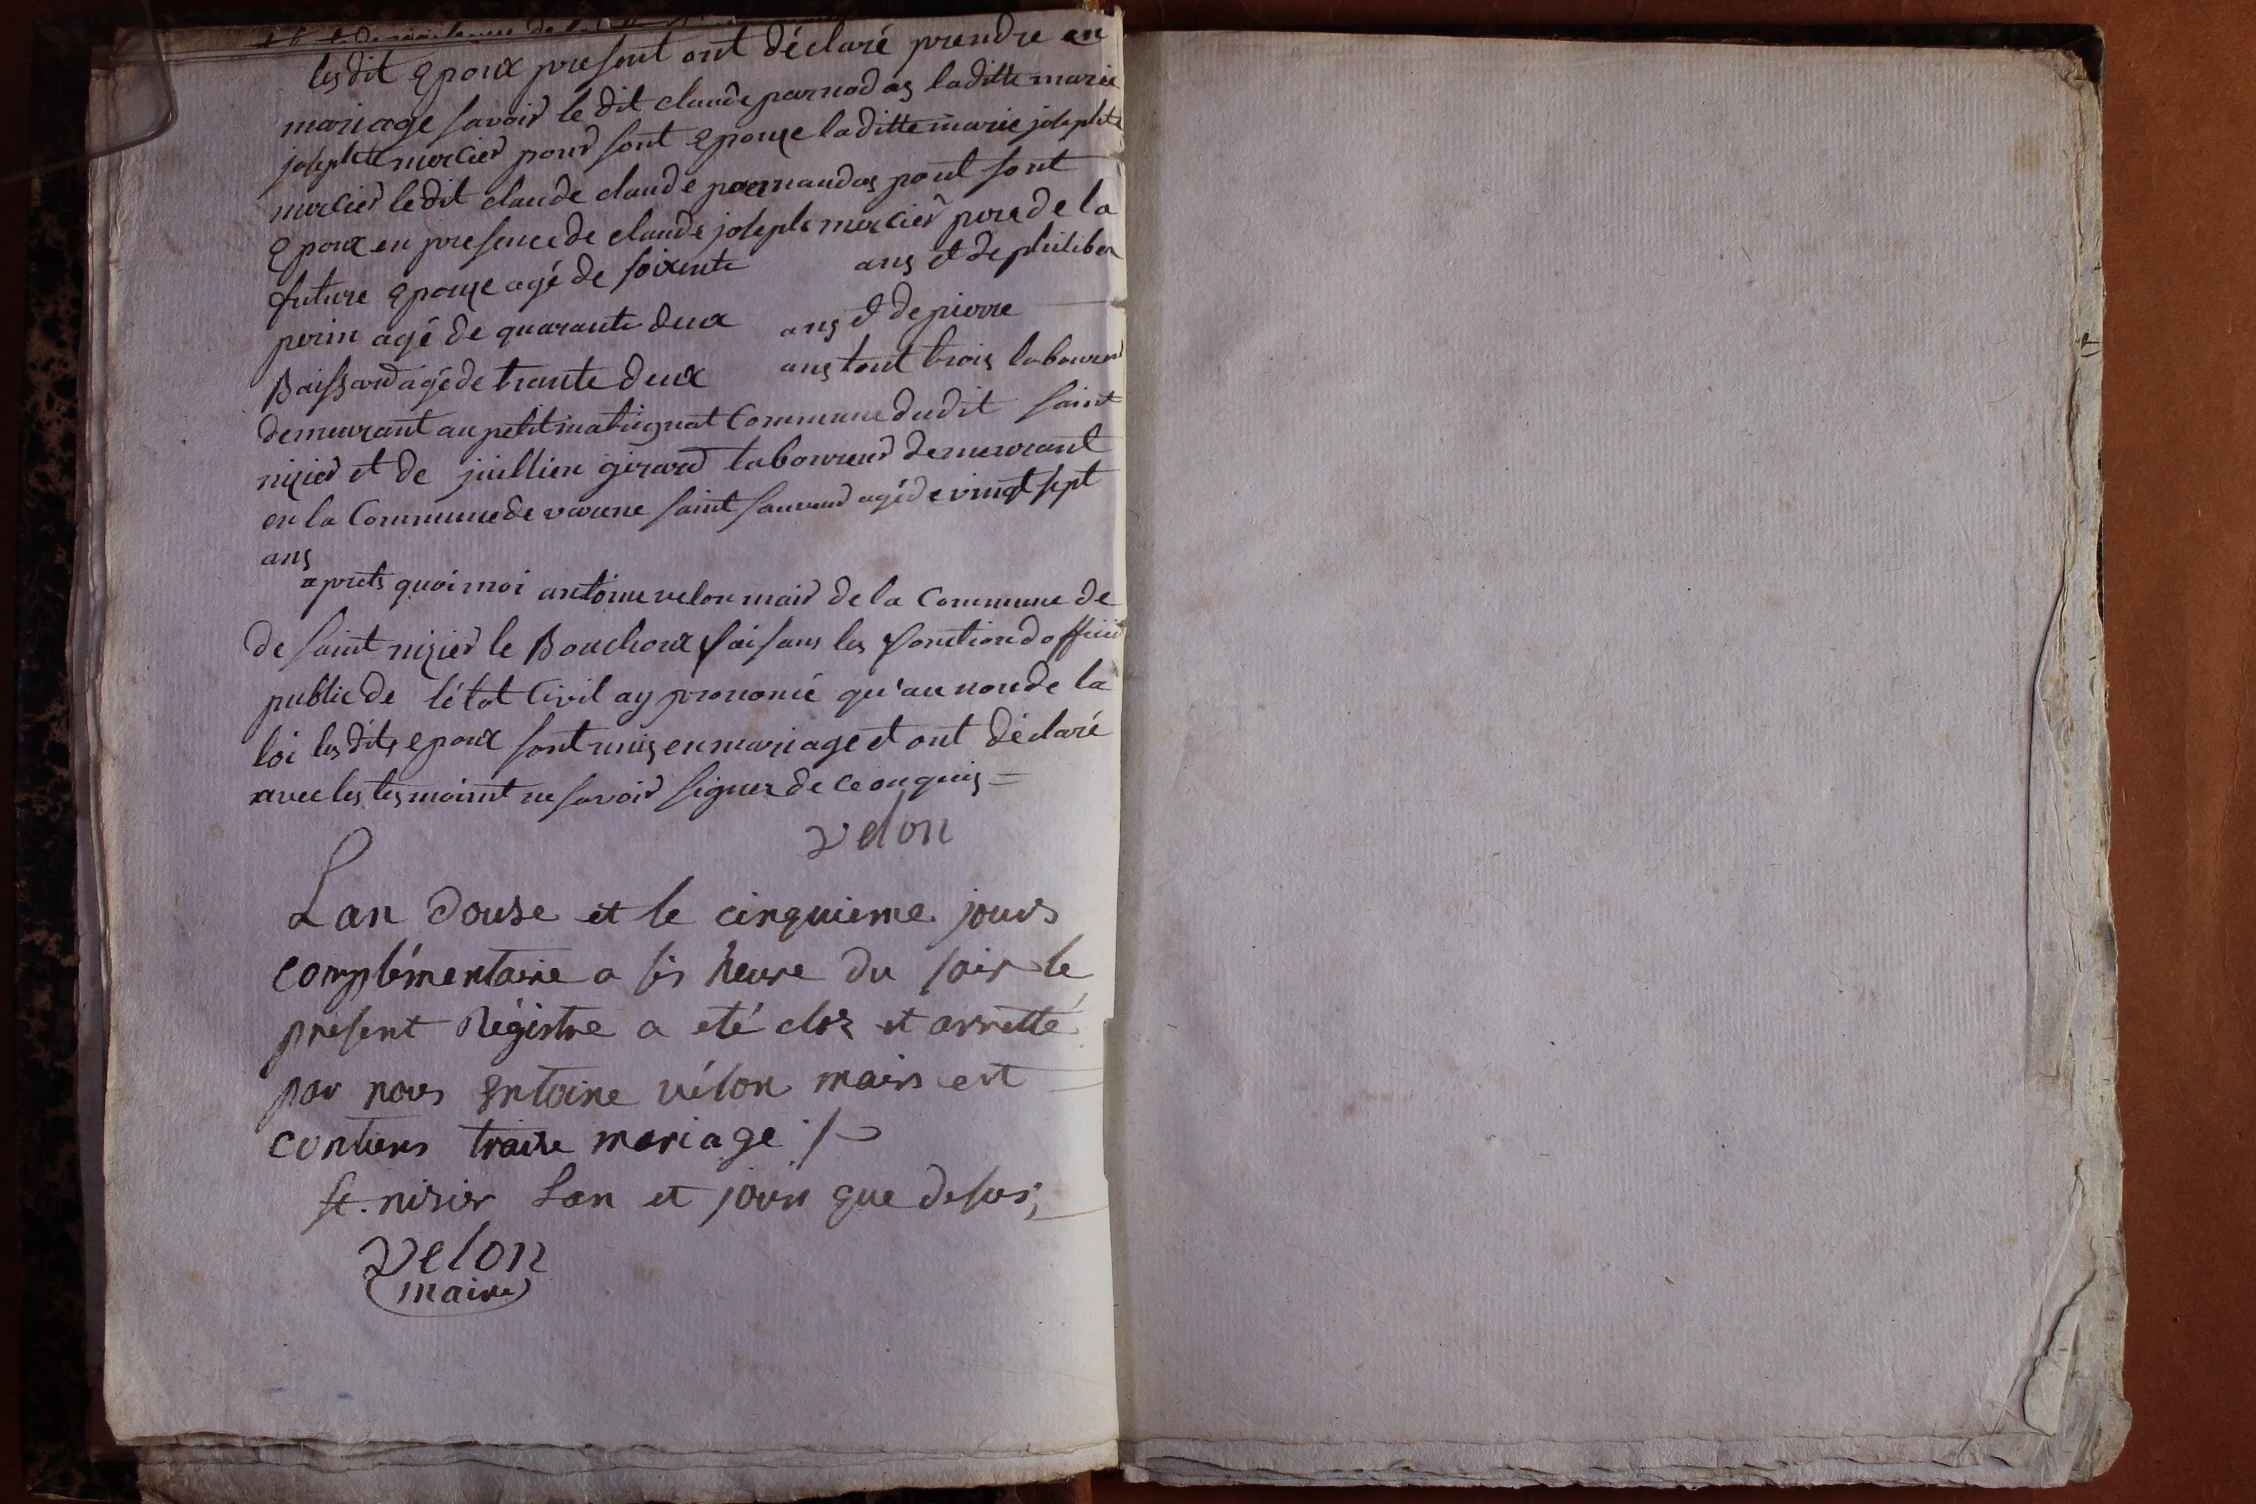 lesdit epoux present ont déclaré prendre en
mariage savoir le dit claude parnodas laditte marie
josephte mercier pour sont epouse laditte marie josephte
mercier ledit claude claude parnaudas pout sont
epoux en presence de claude joseph mercier pere de la
future epouse agé de soixente ans et de philiber
perin agé de quarante deux ans et de pierre
Baissard agé de trante deux ans tout trois laboureur
demeurant au petit matingnat Commune dudit saint
nizier et de juillien girard laboureur demeurant
en la Commune de varene saint sauveur agé de vingt sept
ans
aprets quoi moi antoine velon mair de la Commune de
de saint nizier le Bouchoux faisans les fonction dofficier
public de létat Civil ay prononcé qu'au non de la
loi les dits epoux sont unis en mariage et ont déclaré
avec les tesmoint ne savoir signer de ce enquis =
velon
Lan douse et le cinquieme jours
complémentaire a sis heure du soir le
present Régistre a eté clos et arretté
par nous entoine vélon mairs est
contiens traise mariage ./.
st. nisier Lan et jour que desus;
velon
maire